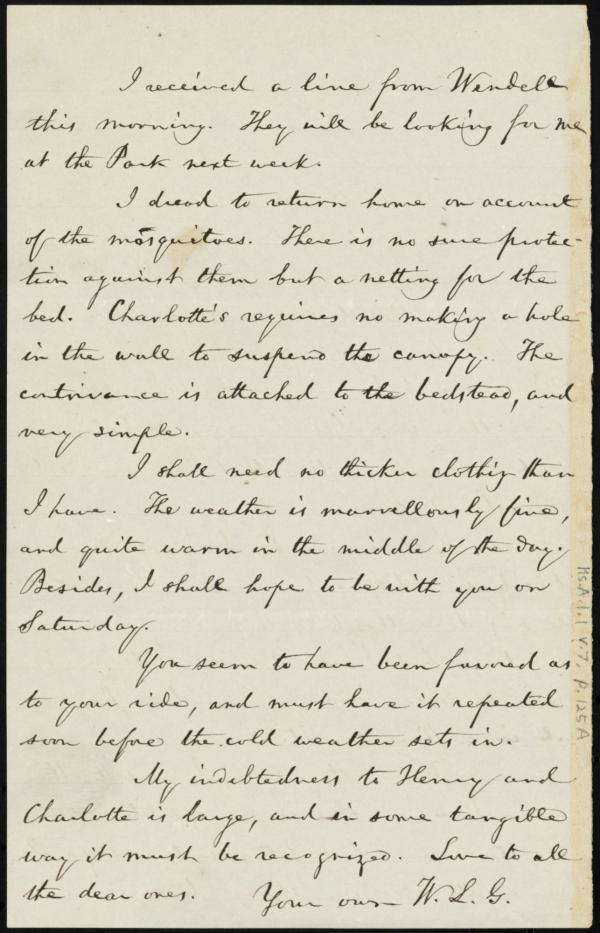 I received a line from Wendell
this morning. They will be looking for me
at the Park next week.
I dread to return home on account
of the mosquitoes. There is no sure protec-
tion against them but a netting for the
bed. Charlotte's requires no making a hole
in the wall to suspend the canopy. The
contrivance is attached to the bedstead, and
very simple.
I shall need no thicker clothing than
I have. The weather is marvellously fine,
and quite warm in the middle of the day.
Besides, I shall hope to be with you on
Saturday.
You seem to have been favored as
to your ride, and must have it repeated
soon before the cold weather sets in.
My indebtedness to Henry and
Charlotte is large, and in some tangible
way it must be recognized. Love to all
the dear ones. Your own W. L. G.
Ms.A.1.1 v.7. p.125A